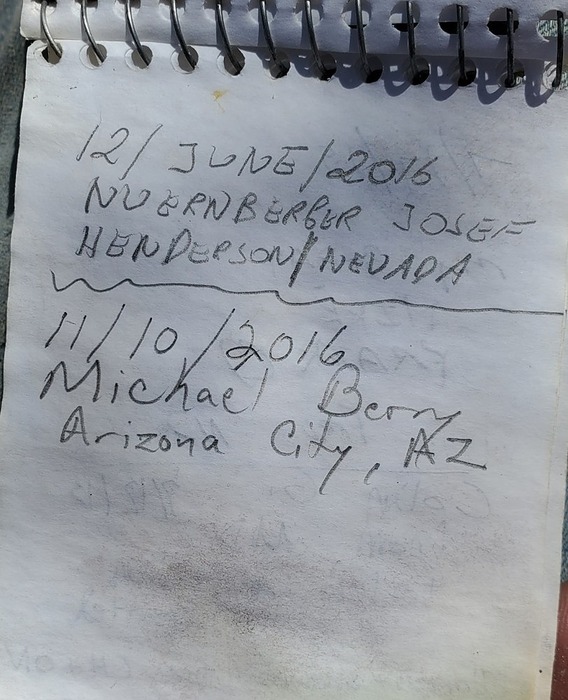 12/JUNE/2016
NUERNBERGER JOSEF
HENDERSON/NEVADA
11/10/2016
Michael Berry
Arizona City, AZ